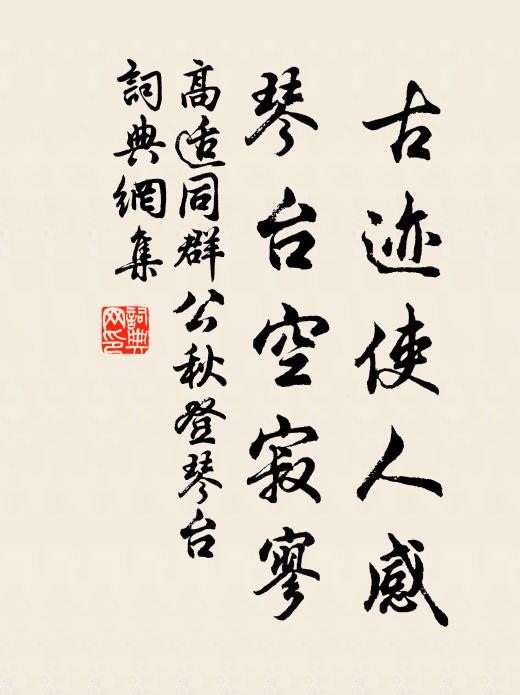 古迹使人感
琴台空寂寥
高适同群公秋登琴台
詞典網集
詞典
网印